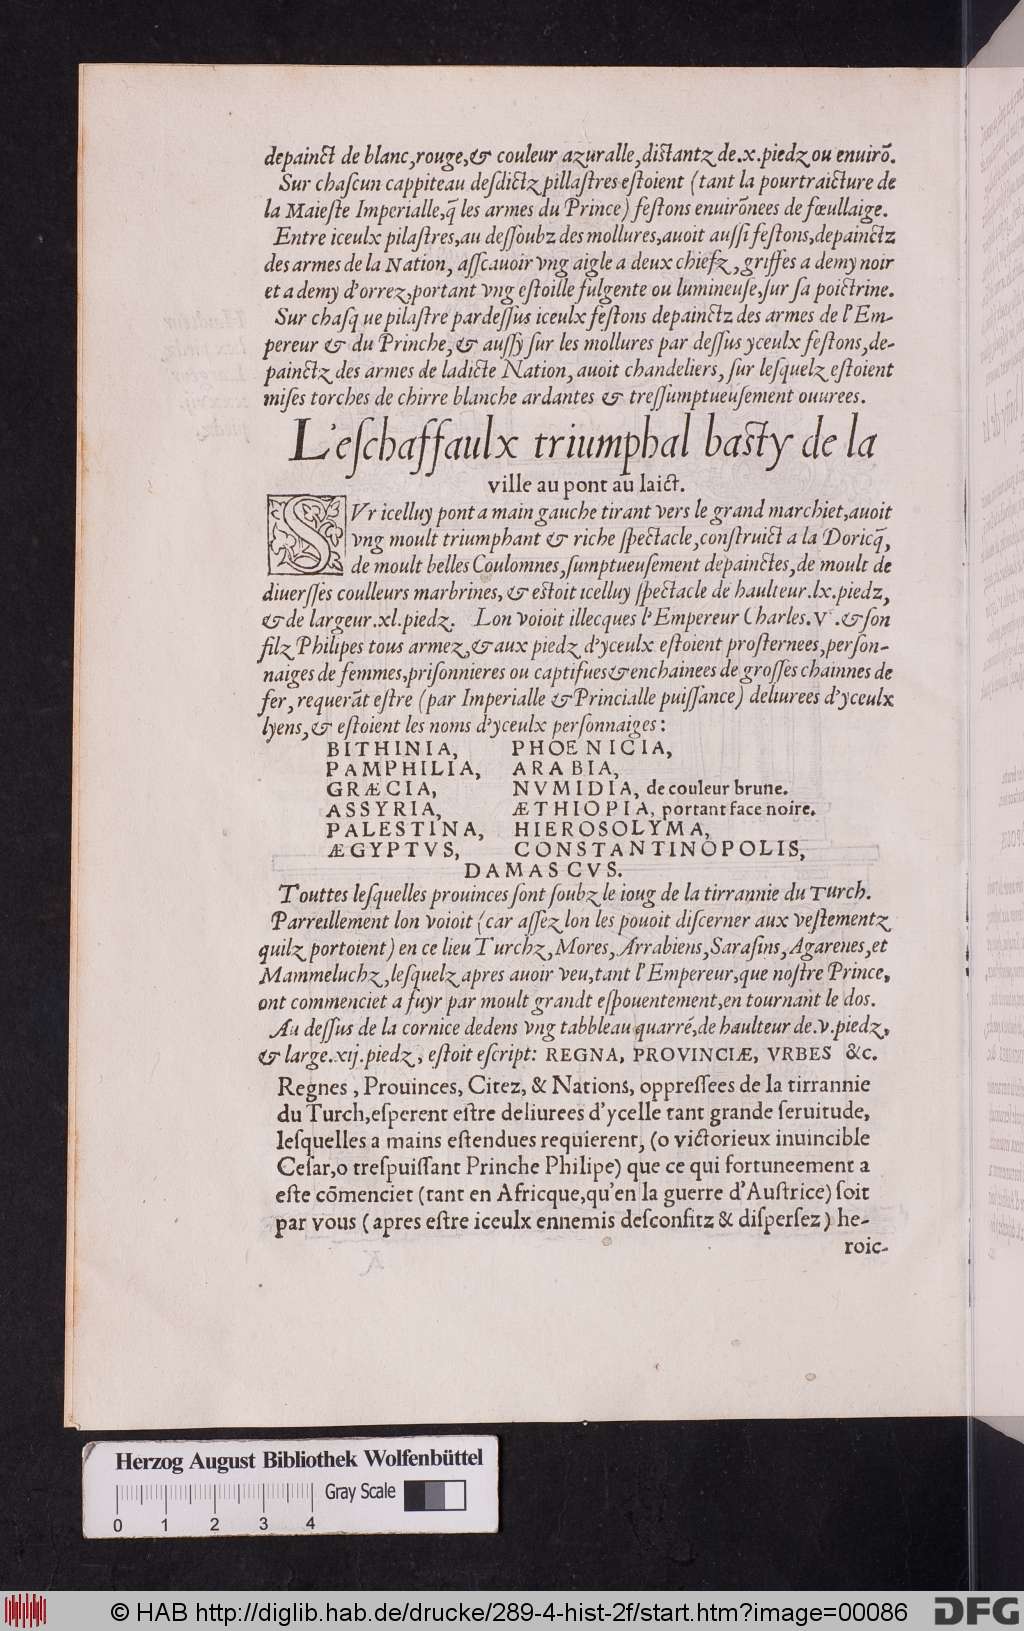 depainct de blanc,rouge,& couleur azuralle,distantz de.x.piedz ou enuirõ.
Sur chaſcun cappiteau deſdictz pillaſtres eſtoient (tant la pourtraicture de
la Maieſte Imperialle,q̃ les armes du Prince) feſtons enuirõnees de fœullaige.
Entre iceulx pilaſtres,au deſſoubz des mollures,auoit auſſi feſtons,depainctz
des armes de la Nation, aſſcauoir vng aigle a deux chiefz, griffes a demy noir
et a demy d'orrez,portant vng eſtoille fulgente ou lumineuſe,ſur ſa poictrine.
Sur chaſq ue pilaſtre pardeſſus iceulx feſtons depainctz des armes de l'Em-
pereur & du Prinche, & auſſy ſur les mollures par deſſus yceulx feſtons,de-
painctz des armes de ladicte Nation, auoit chandeliers, ſur leſquelz eſtoient
miſes torches de chirre blanche ardantes & treſſumptueuſement ouurees.
L'eſchaffaulx triumphal baſty de la
ville au pont au laict.
SVr icelluy pont a main gauche tirant vers le grand marchiet,auoit
vng moult triumphant & riche ſpectacle,conſtruict a la Doricq̃,
de moult belles Coulomnes,ſumptueuſement depainctes,de moult de
diuerſſes coulleurs marbrines, & eſtoit icelluy ſpectacle de haulteur.lx.piedz,
& de largeur.xl.piedz. Lon voioit illecques l'Empereur Charles.V.& ſon
filz Philipes tous armez,& aux piedz d'yceulx eſtoient proſternees,perſon-
naiges de femmes,priſonnieres ou captifues & enchainees de groſſes chainnes de
fer, requerãt eſtre (par Imperialle & Princialle puiſſance) deliurees d'yceulx
lyens, & eſtoient les noms d'yceulx perſonnaiges:
BITHINIA, PHOENICIA,
PAMPHILIA, ARABIA,
GRÆCIA, NVMIDIA, de couleur brune.
ASSYRIA, ÆTHIOPIA, portant face noire.
PALESTINA, HIEROSOLYMA,
ÆGYPTVS, CONSTANTINOPOLIS,
DAMASCVS.
Touttes leſquelles prouinces ſont ſoubz le ioug de la tirrannie du Turch.
Parreillement lon voioit (car aſſez lon les pouoit diſcerner aux veſtementz
quilz portoient) en ce lieu Turchz, Mores, Arrabiens, Saraſins, Agarenes, et
Mammeluchz,leſquelz apres auoir veu,tant l'Empereur,que noſtre Prince,
ont commenciet a fuyr par moult grandt eſpouentement,en tournant le dos.
Au deſſus de la cornice dedens vng tabbleau quarré,de haulteur de.v.piedz,
& large.xij.piedz, eſtoit eſcript: REGNA, PROVINCIÆ, VRBES &c.
Regnes, Prouinces, Citez, & Nations, oppreſſees de la tirrannie
du Turch,eſperent eſtre deliurees d'ycelle tant grande ſeruitude,
leſquelles a mains eſtendues requierent, (o victorieux inuincible
Ceſar,o treſpuiſſant Prinche Philipe) que ce qui fortuneement a
eſte cõmenciet (tant en Africque,qu'en la guerre d'Auſtrice) ſoit
par vous (apres eſtre iceulx ennemis deſconfitz & diſperſez) he-
roic-
Herzog August Bibliothek Wolfenbüttel
Gray Scale
0 1 2 3 4
© HAB http://diglib.hab.de/drucke/289-4-hist-2f/start.htm?image=00086
DFG